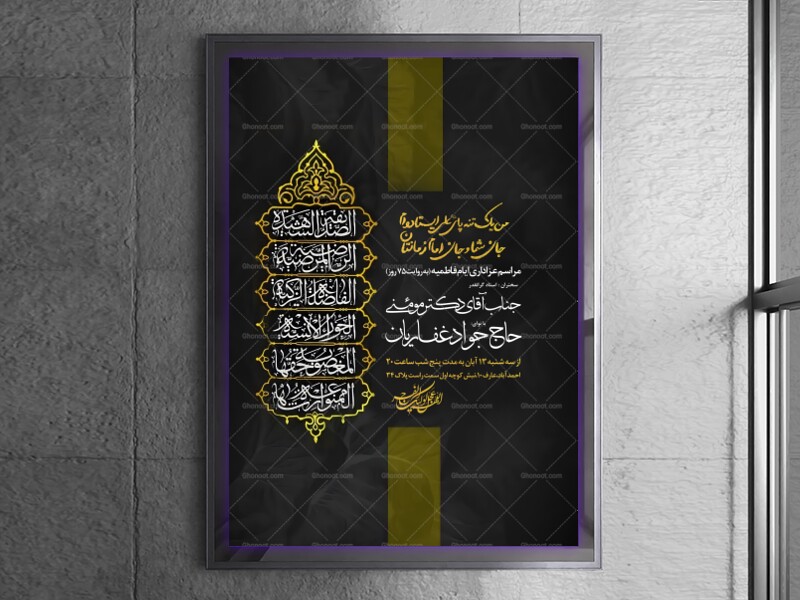 الصدیقة الشهیدة
الرضیة المرضیة
الفاضلة الزکیة
الحوراء الانسیة
المغصوبة حقها
الممنوعة ارثها
من یک تنه پای علی ایستاده‌ام
جان شما و جان امام زمانتان
مراسم عزاداری ایام فاطمیه (به روایت ۷۵ روز)
سخنران: استاد گرانقدر
جناب آقای دکتر مومنی
با نوای
حاج جواد غفاریان
از سه شنبه ۱۳ آبان به مدت پنج شب ساعت ۲۰
احمدآباد، عارف ۱۰، نبش کوچه اول سمت راست پلاک ۳۴
Ghonoot.com